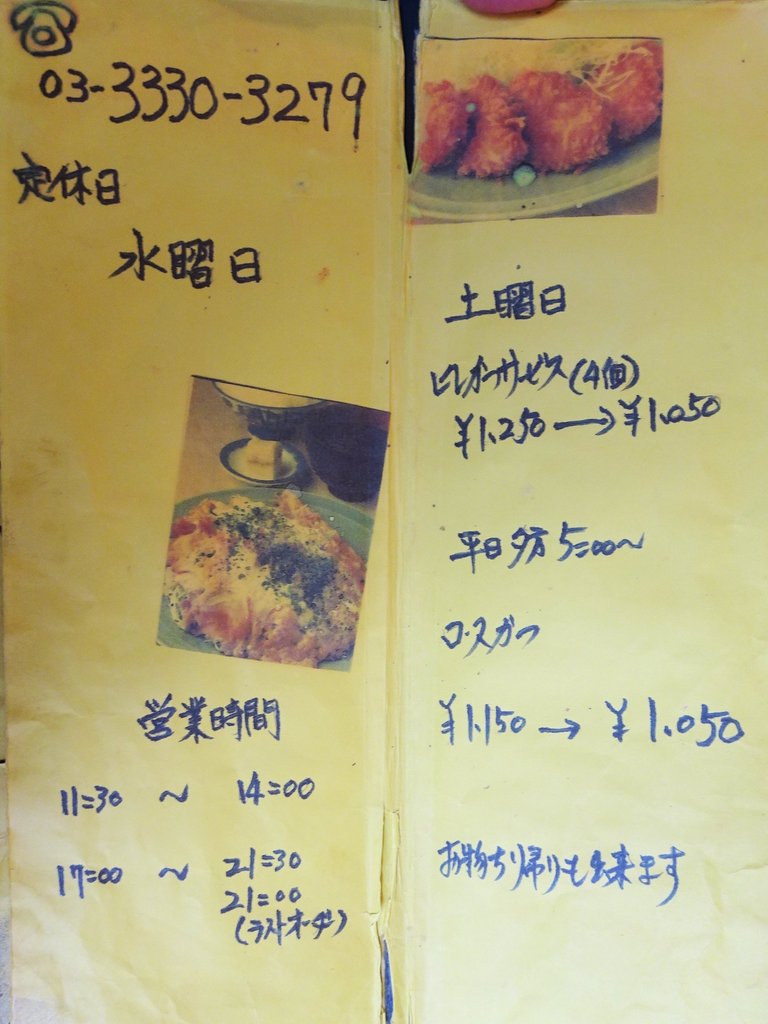 ☎
03-3330-3279
定休日
水曜日
営業時間
11:30 ～ 14:00
17:00 ～ 21:30
21:00
(ラストオーダー)
土曜日
ヒレカツサービス(4個)
¥1.250→¥1.050
平日夕方5:00～
ロースカツ
¥1.150→¥1.050
お持ち帰りも出来ます